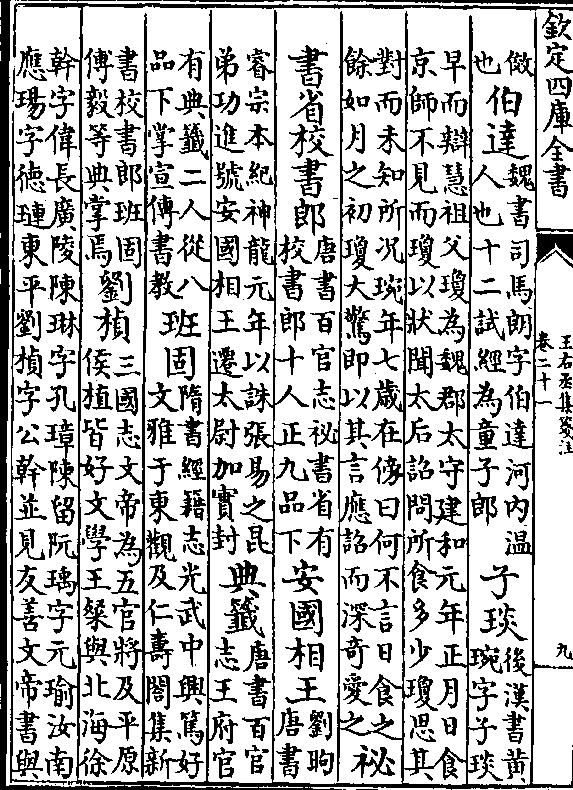 欽定四庫全書
王右丞集箋注
卷二十一
九
傚
也
伯達
魏書司馬朗字伯達河内温
人也十二試經為童子郎
子琰
後漢書黄
琬字子琰
早而辯慧祖父瓊為魏郡太守建和元年正月日食
京師不見而瓊以狀聞太后詔問所食多少瓊思其
對而未知所况琬年七歳在傍曰何不言日食之
餘如月之初瓊大驚即以其言應詔而深奇愛之
祕
書省校書郎
唐書百官志祕書省有
校書郎十人正九品下
安國相王
劉昫
唐書
睿宗本紀神龍元年以誅張易之昆
弟功進號安國相王遷太尉加實封
典籤
唐書百官
志王府官
有典籤二人從八
品下掌宣傳書教
班固
隋書經籍志光武中興篤好
文雅于東觀及仁壽閣集新
書校書郎班固
傅毅等典掌焉
劉楨
三國志文帝為五官將及平原
侯植皆好文學王粲與北海徐
幹字偉長廣陵陳琳字孔璋陳留阮瑀字元瑜汝南
應瑒字德璉東平劉楨字公幹並見友善文帝書與